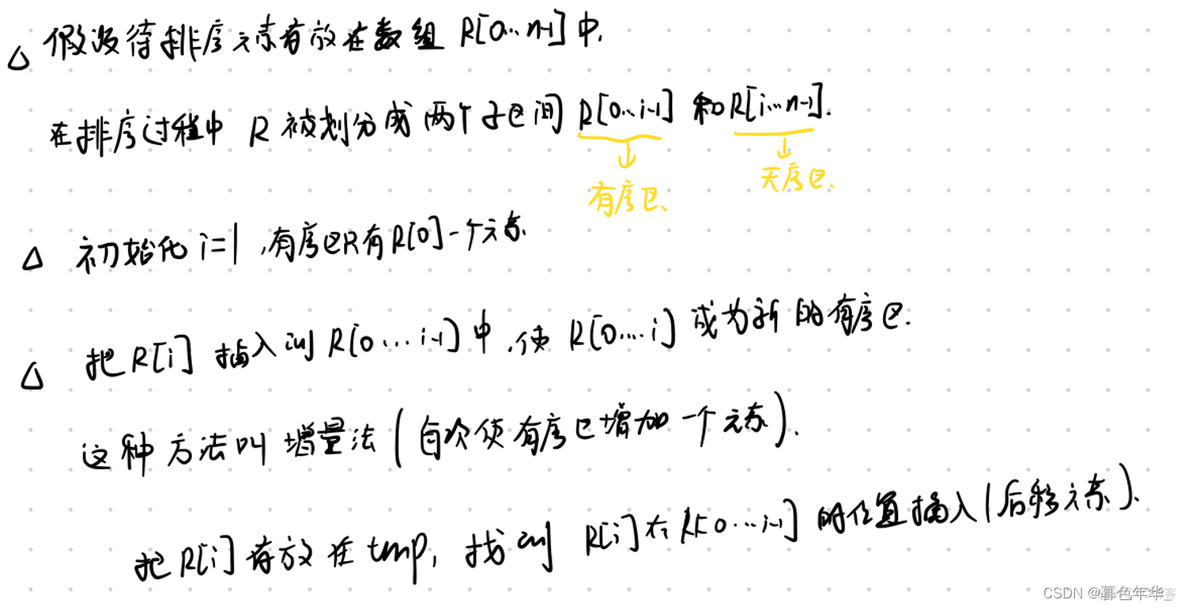 △ 假设待排序元素存放在数组 R[0…n-1]中.
在排序过程中 R 被划分成两个子区间 R[0…i-1] 和R[i…n-1].
有序区. 无序区.
△ 初始化 i=1 ,有序区只有R[0]一个元素.
△ 把 R[i] 插入到 R[0…i-1]中,使 R[0…i] 成为新的有序区.
这种方法叫增量法(每次使有序区增加一个元素).
把R[i]存放在tmp, 找到 R[i]在R[0…i-1]的位置插入(后移元素).
CSDN @暮色年华